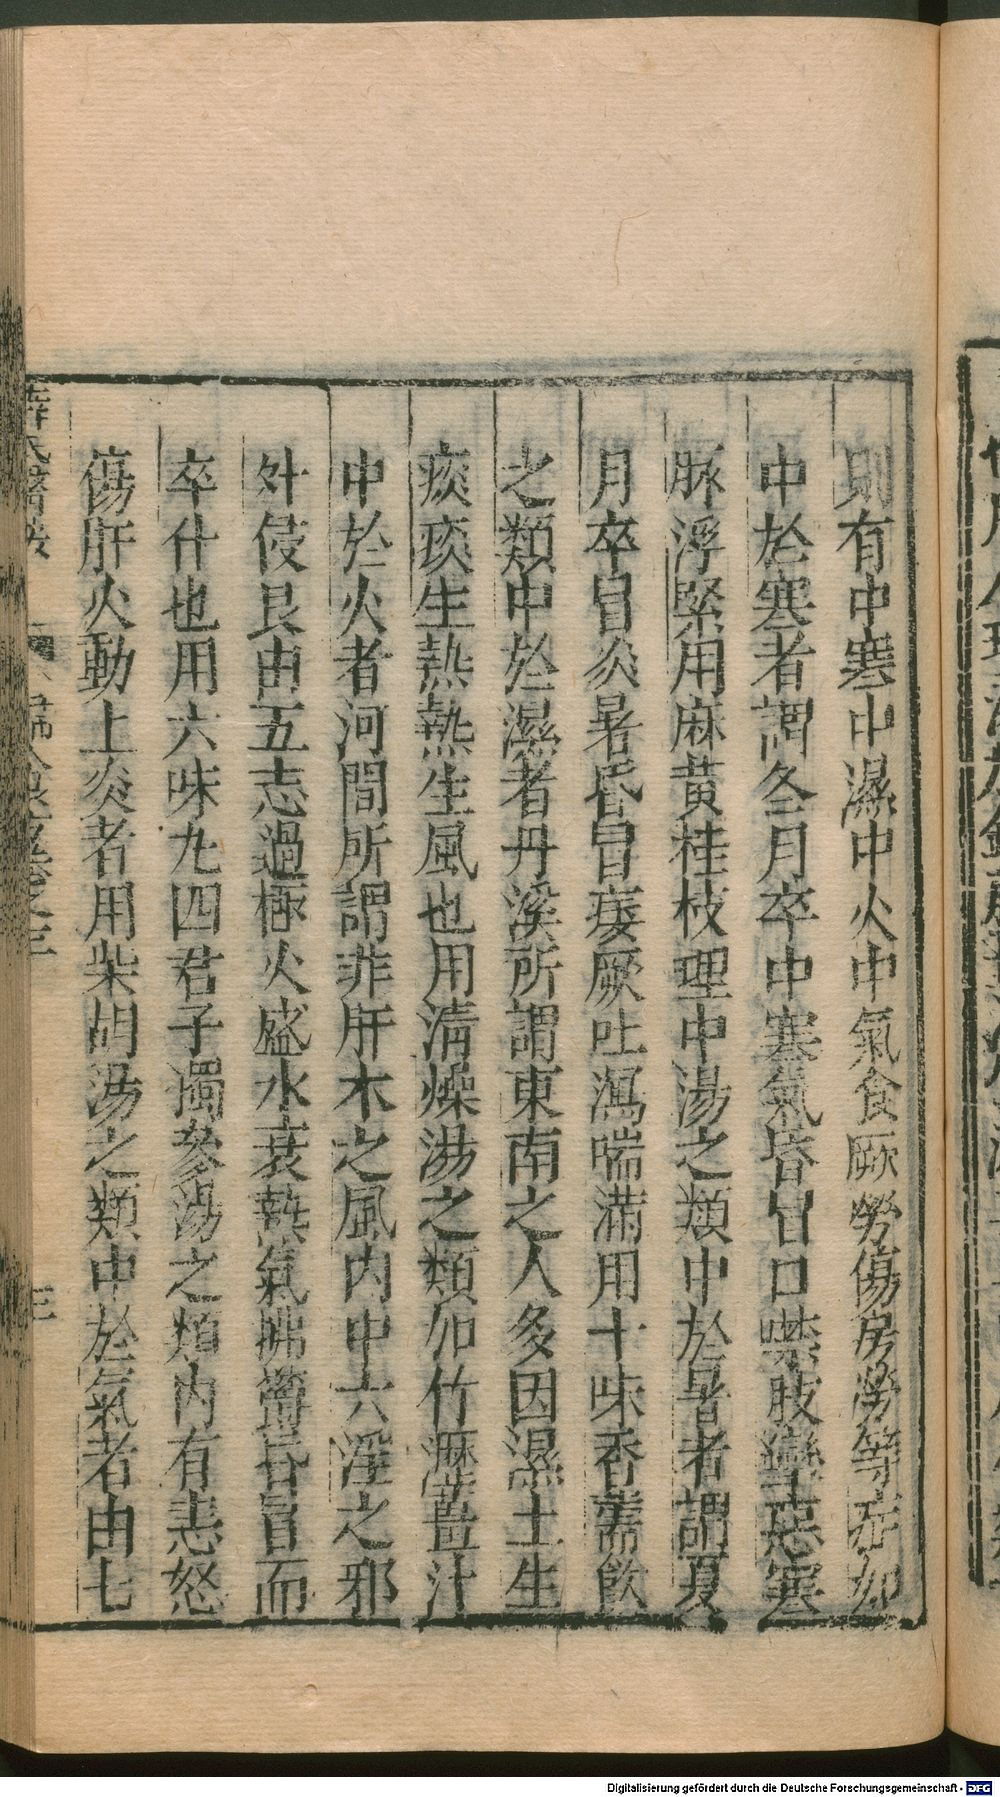 則有中寒中濕中火中氣食厥勞傷房勞等症如
中於寒者謂冬月卒中寒氣昏冒口噤肢攣惡寒
脉浮緊用麻黄桂枝理中湯之類中於暑者謂夏
月卒冒炎暑昏冒痿厥吐瀉喘滿用十味香薷飲
之類中於濕者丹溪所謂東南之人多因濕土生
痰痰生熱熱生風也用清燥湯之類加竹瀝薑汁
中於火者河間所謂非肝木之風内中六淫之邪
外侵良由五志過極火盛水衰熱氣怫鬱昏冒而
卒仆也用六味丸四君子獨參湯之類内有恚怒
傷肝火動上炎者用柴胡湯之類中於氣者由七
薛氏醫按
三
Digitalisierung gefördert durch die Deutsche Forschungsgemeinschaft - DFG